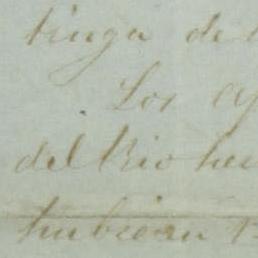 tinga de
Los
del Rio
hubieran